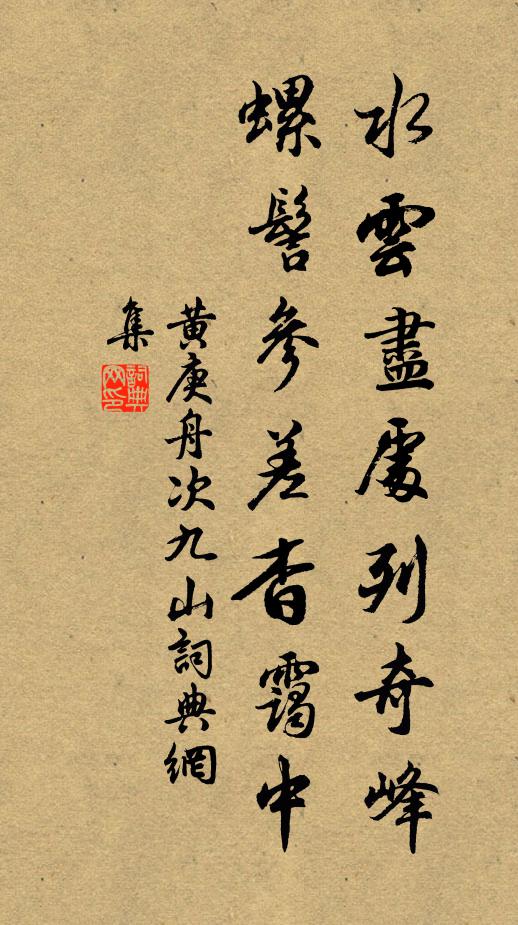 水雲盡處列奇峰
螺髻參差杳靄中
黃庚舟次九山詞典網
集
詞典
网印